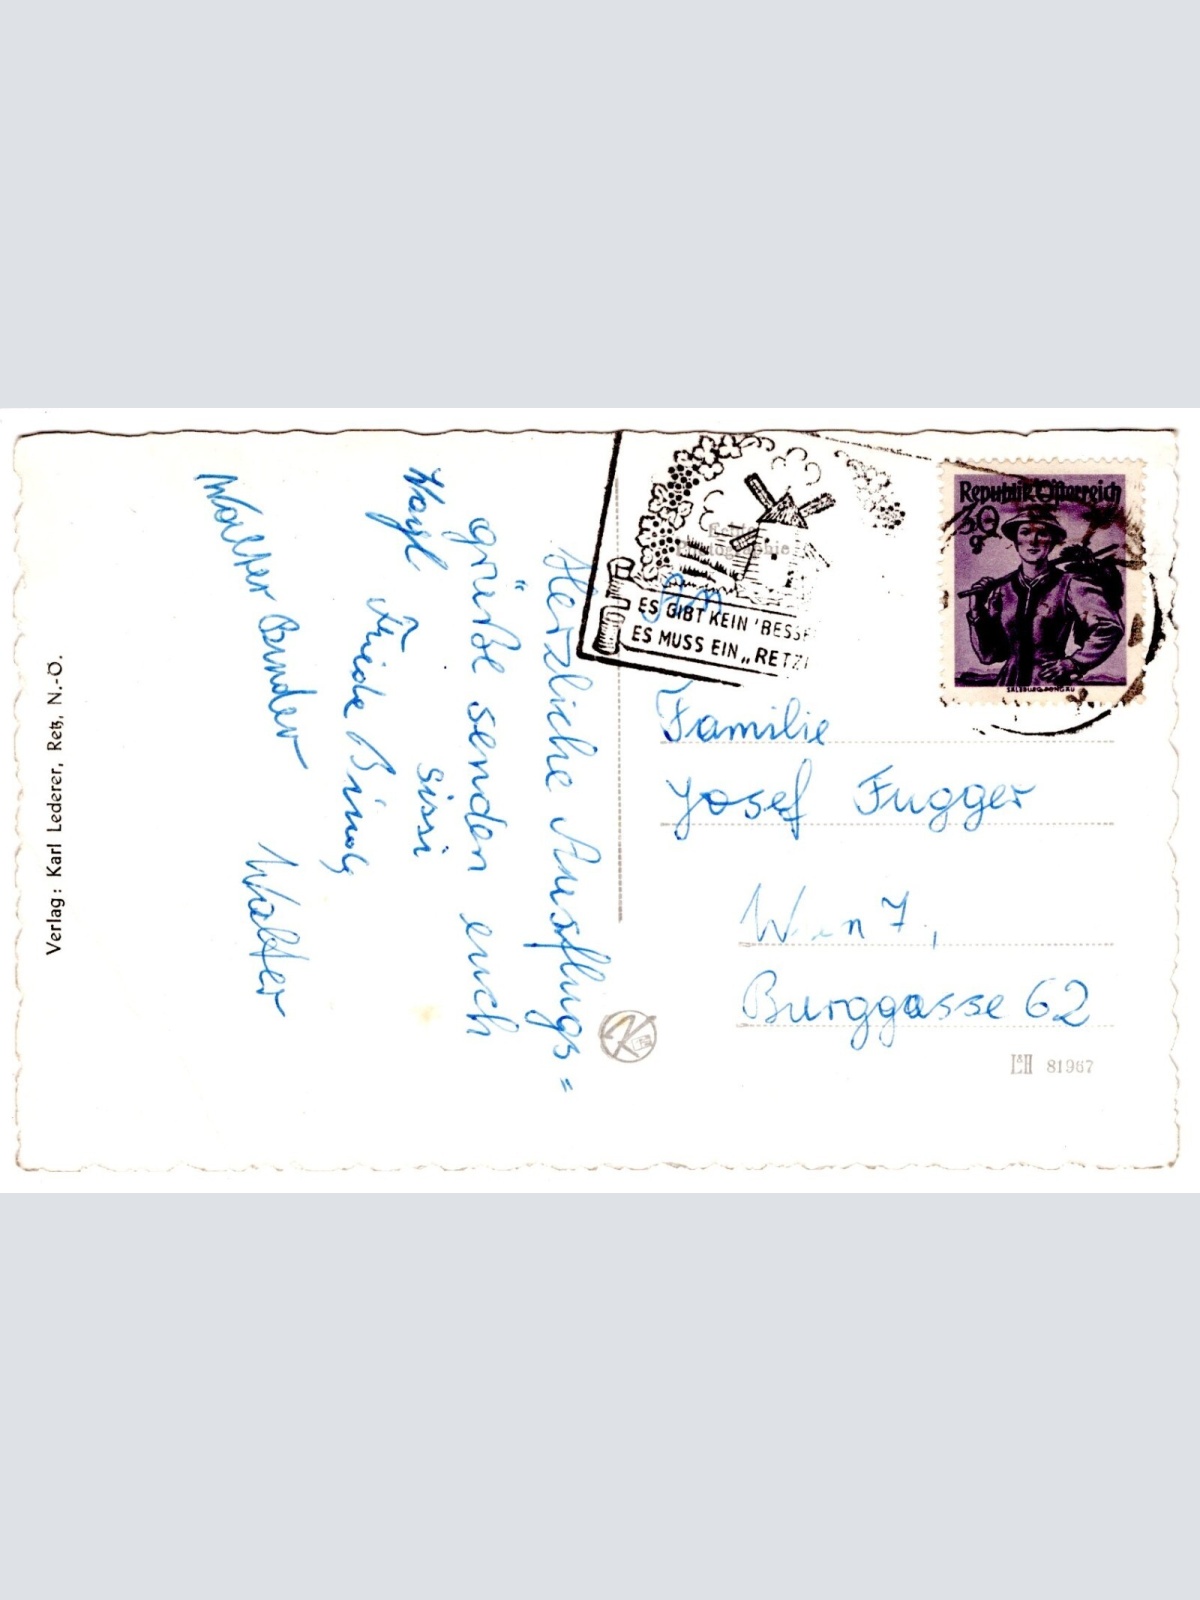 Herzliche Ausflugs=
grüße senden euch
Sissi
Walter
Verlag: Karl Lederer, Retz, N.-Ö.
Echte
Photographie
ES GIBT KEIN 'BESSR
ES MUSS EIN „RETZ
Republik Österreich
30
g
SALZBURG-PONGAU
An
Familie
Josef Fugger
Wien 7,
Burggasse 62
K
L&H 81967